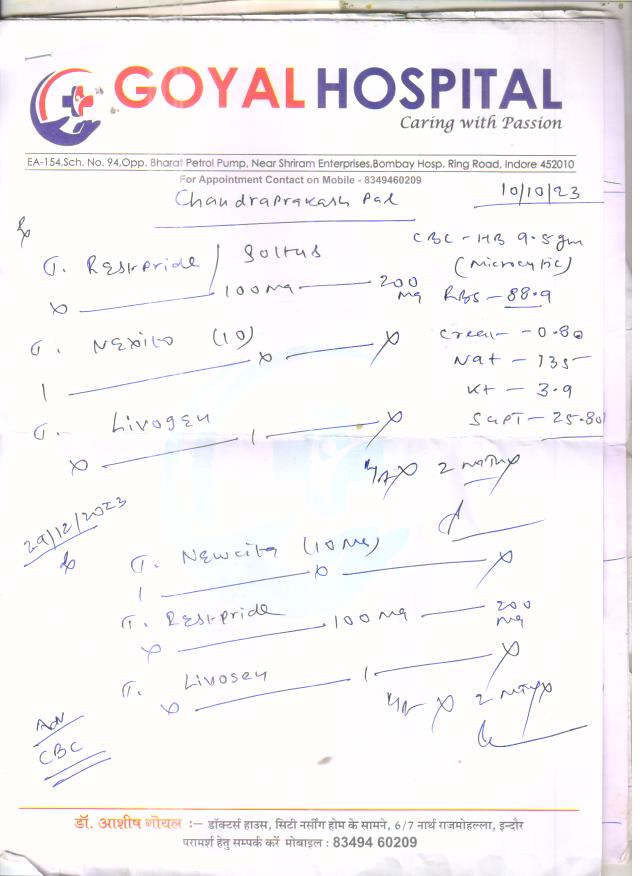 GOYAL HOSPITAL
Caring with Passion
EA-154,Sch. No. 94,Opp. Bharat Petrol Pump, Near Shriram Enterprises,Bombay Hosp. Ring Road, Indore 452010
For Appointment Contact on Mobile - 8349460209
Chandraprakash Pal 10/10/23
CBC - HB 9.5gm
(Microcytic)
RBS - 88.9
Creat - 0.80
Na+ - 135
K+ - 3.9
SGPT - 25.80
Rx
T. Resi-pride / Soltus
x 100mg 200 mg
T. Nexito (10)
1 x x
T. Livogen
x 1 x
x 2 mnths
29/12/2023
Rx
T. Newcita (10mg)
1 x x
T. Resi-pride
x 100 mg 200 mg
T. Livogen
x 1 x
x 2 mnths
Adv
CBC
डॉ. आशीष गोयल :– डॉक्टर्स हाउस, सिटी नर्सींग होम के सामने, 6/7 नार्थ राजमोहल्ला, इन्दौर
परामर्श हेतु सम्पर्क करें मोबाइल : 83494 60209